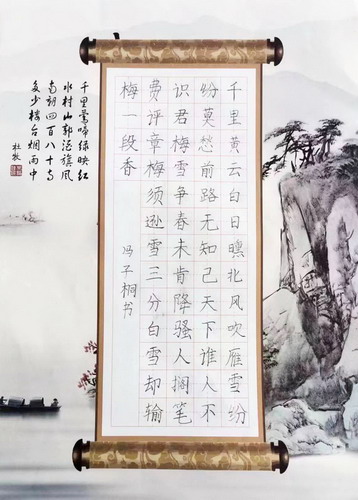 千里黄云白日曛北风吹雁雪纷
纷莫愁前路无知己天下谁人不
识君梅雪争春未肯降骚人搁笔
费评章梅须逊雪三分白雪却输
梅一段香
冯子桐书
千里莺啼绿映红
水村山郭酒旗风
南朝四百八十寺
多少楼台烟雨中
杜牧